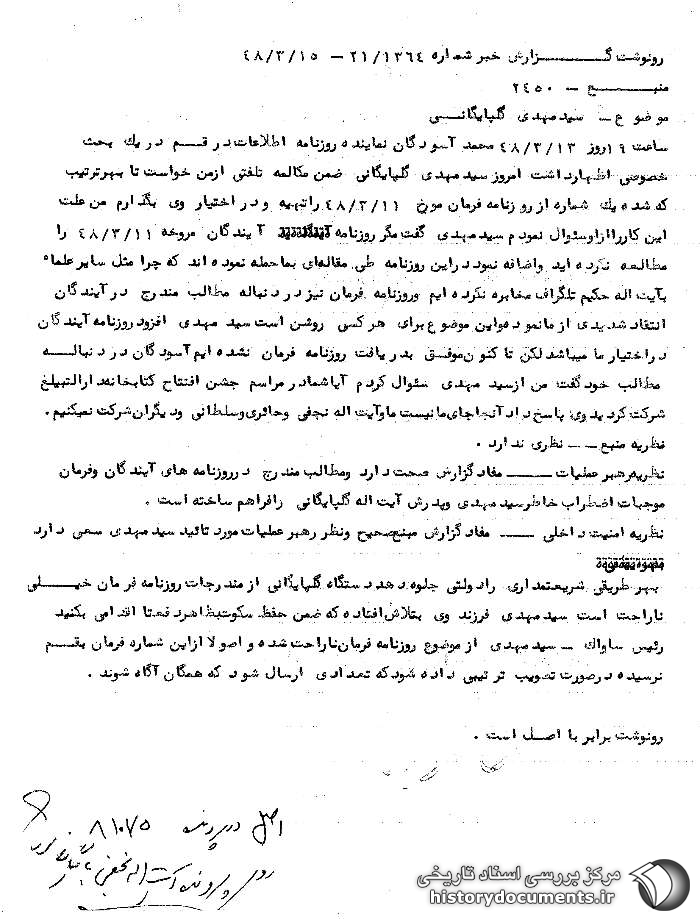 رونوشت گـــــــزارش خبر شماره ۲۱/۱۳۶۴ – ۴۸/۳/۱۵
منبـــــــع – ۲۴۵۰
موضوع – سید مهدی گلپایگانــی
ساعت ۱۹ روز ۴۸/۳/۱۳ محمد آسودگان نماینده روزنامه اطلاعات در قــم در یك بحث
خصوصی اظهار داشت امروز سید مهدی گلپایگانی ضمن مکالمه تلفنی از من خواست تا بهر ترتیب
که شده یك شماره از روزنامه فرمان مورخ ۴۸/۳/۱۱ را تهیه و در اختیار وی بگذارم من علت
این کار را از او سئوال نمودم سید مهدی گفت مگر روزنامه آیندگان مورخه ۴۸/۳/۱۱ را
مطالعه نکرده اید واضافه نمود در این روزنامه طی مقاله‌ای بما حمله نموده اند که چرا مثل سایر علماء
بآیت اله حکیم تلگراف مخابره نکرده ایم وروزنامه فرمان نیز در دنباله مطالب مندرج در آیندگان
انتقاد شدیدی از ما نموده واین موضوع برای هر کسی روشن است سید مهدی افزود روزنامه آیندگان
در اختیار ما میباشد لکن تا کنون موفق بدریافت روزنامه فرمان نشده ایم آسودگان در دنبالــه
مطالب خود گفت من از سید مهدی سئوال کردم آیا شما در مراسم جشن افتتاح کتابخانه دارالتبلیغ
شرکت کردید وی پاسخ داد آنجا جای ما نیست ما وآیت اله نجفی وحائری وسلطانی ودیگران شرکت نمیکنیم .
نظریه منبع ــ نظری ندارد .
نظریه رهبر عملیات ـــــ مفاد گزارش صحت دارد ومطالب مندرج در روزنامه های آیندگان وفرمان
موجبات اضطراب خاطر سید مهدی وپدرش آیت اله گلپایگانی را فراهم ساخته است .
نظریه امنیت داخلی ـــ مفاد گزارش منبع صحیح ونظر رهبر عملیات مورد تائید سید مهدی سعی دارد
بهر طریقی شریعتمداری را دولتی جلوه دهد دستگاه گلپایگانی از مندرجات روزنامه فرمان خیــلی
ناراحت است سید مهدی فرزند وی بتلاش افتاده که ضمن حفظ سکوت بظاهر دفعتا اقدامی بکنید
رئیس ساواك ــ سید مهدی از موضوع روزنامه فرمان ناراحت شده و اصولا از این شماره فرمان بقــم
نرسیده در صورت تصویب ترتیبی داده شود که تعدادی ارسال شود که همگان آگاه شوند .
رونوشت برابر با اصل است .
اصل در پرونده ۸۱۰۷۵
در پرونده آیت اله نجفی
مرکز بررسی اسناد تاریخی
historydocuments.ir